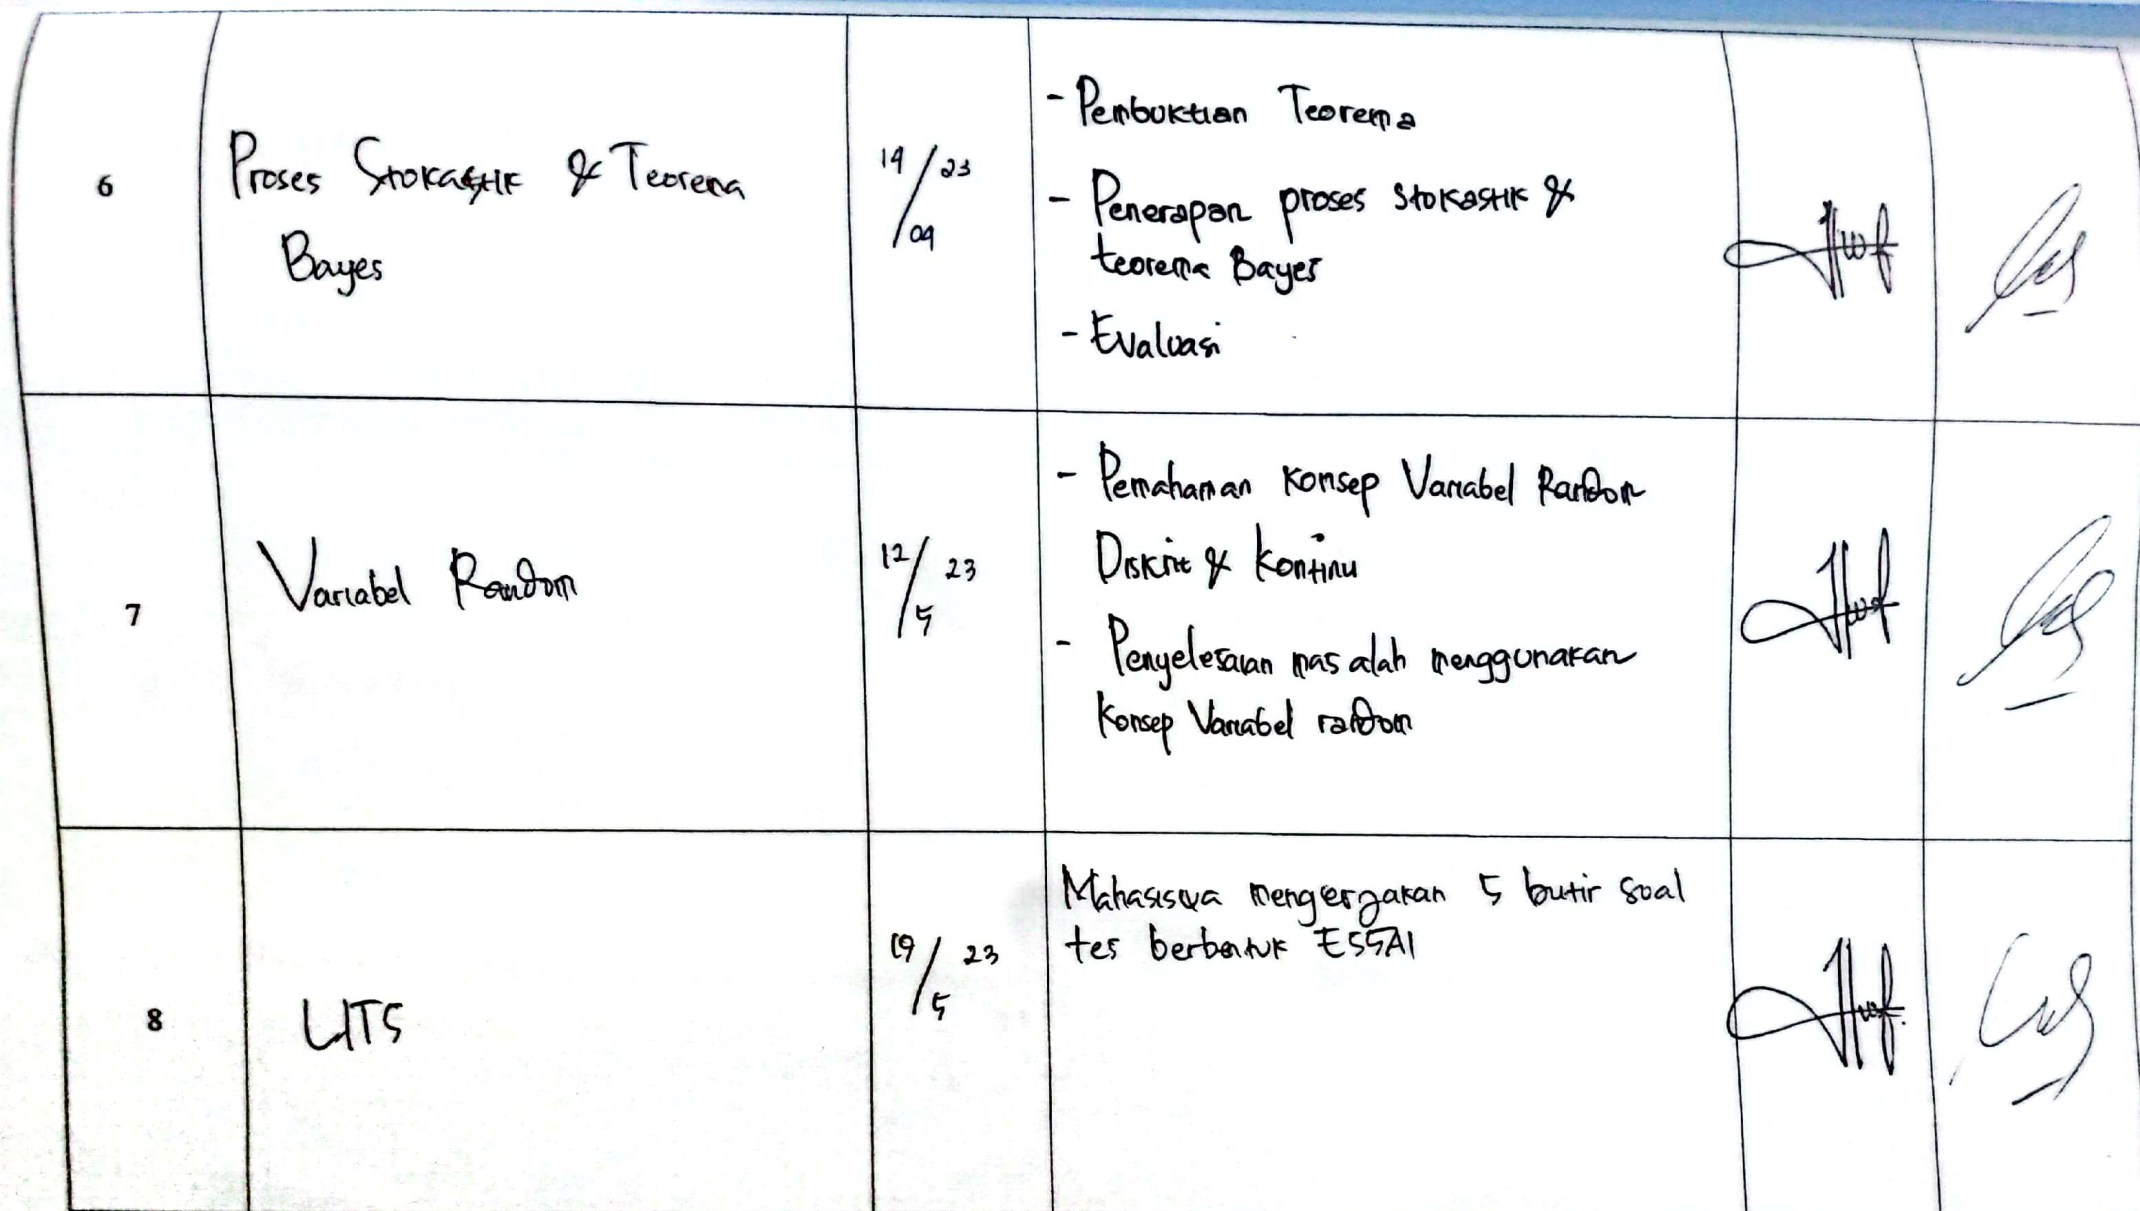 6
Proses Stokastik & Teorema
Bayes
19/09 23
- Pembuktian Teorema
- Penerapan proses stokastik &
teorema Bayes
- Evaluasi
7
Variabel Random
12/5 23
- Pemahaman konsep Variabel Random
Diskrit & kontinu
- Penyelesaian masalah menggunakan
konsep Variabel random
8
UTS
19/5 23
Mahasiswa mengerjakan 5 butir soal
tes berbentuk ESSAI